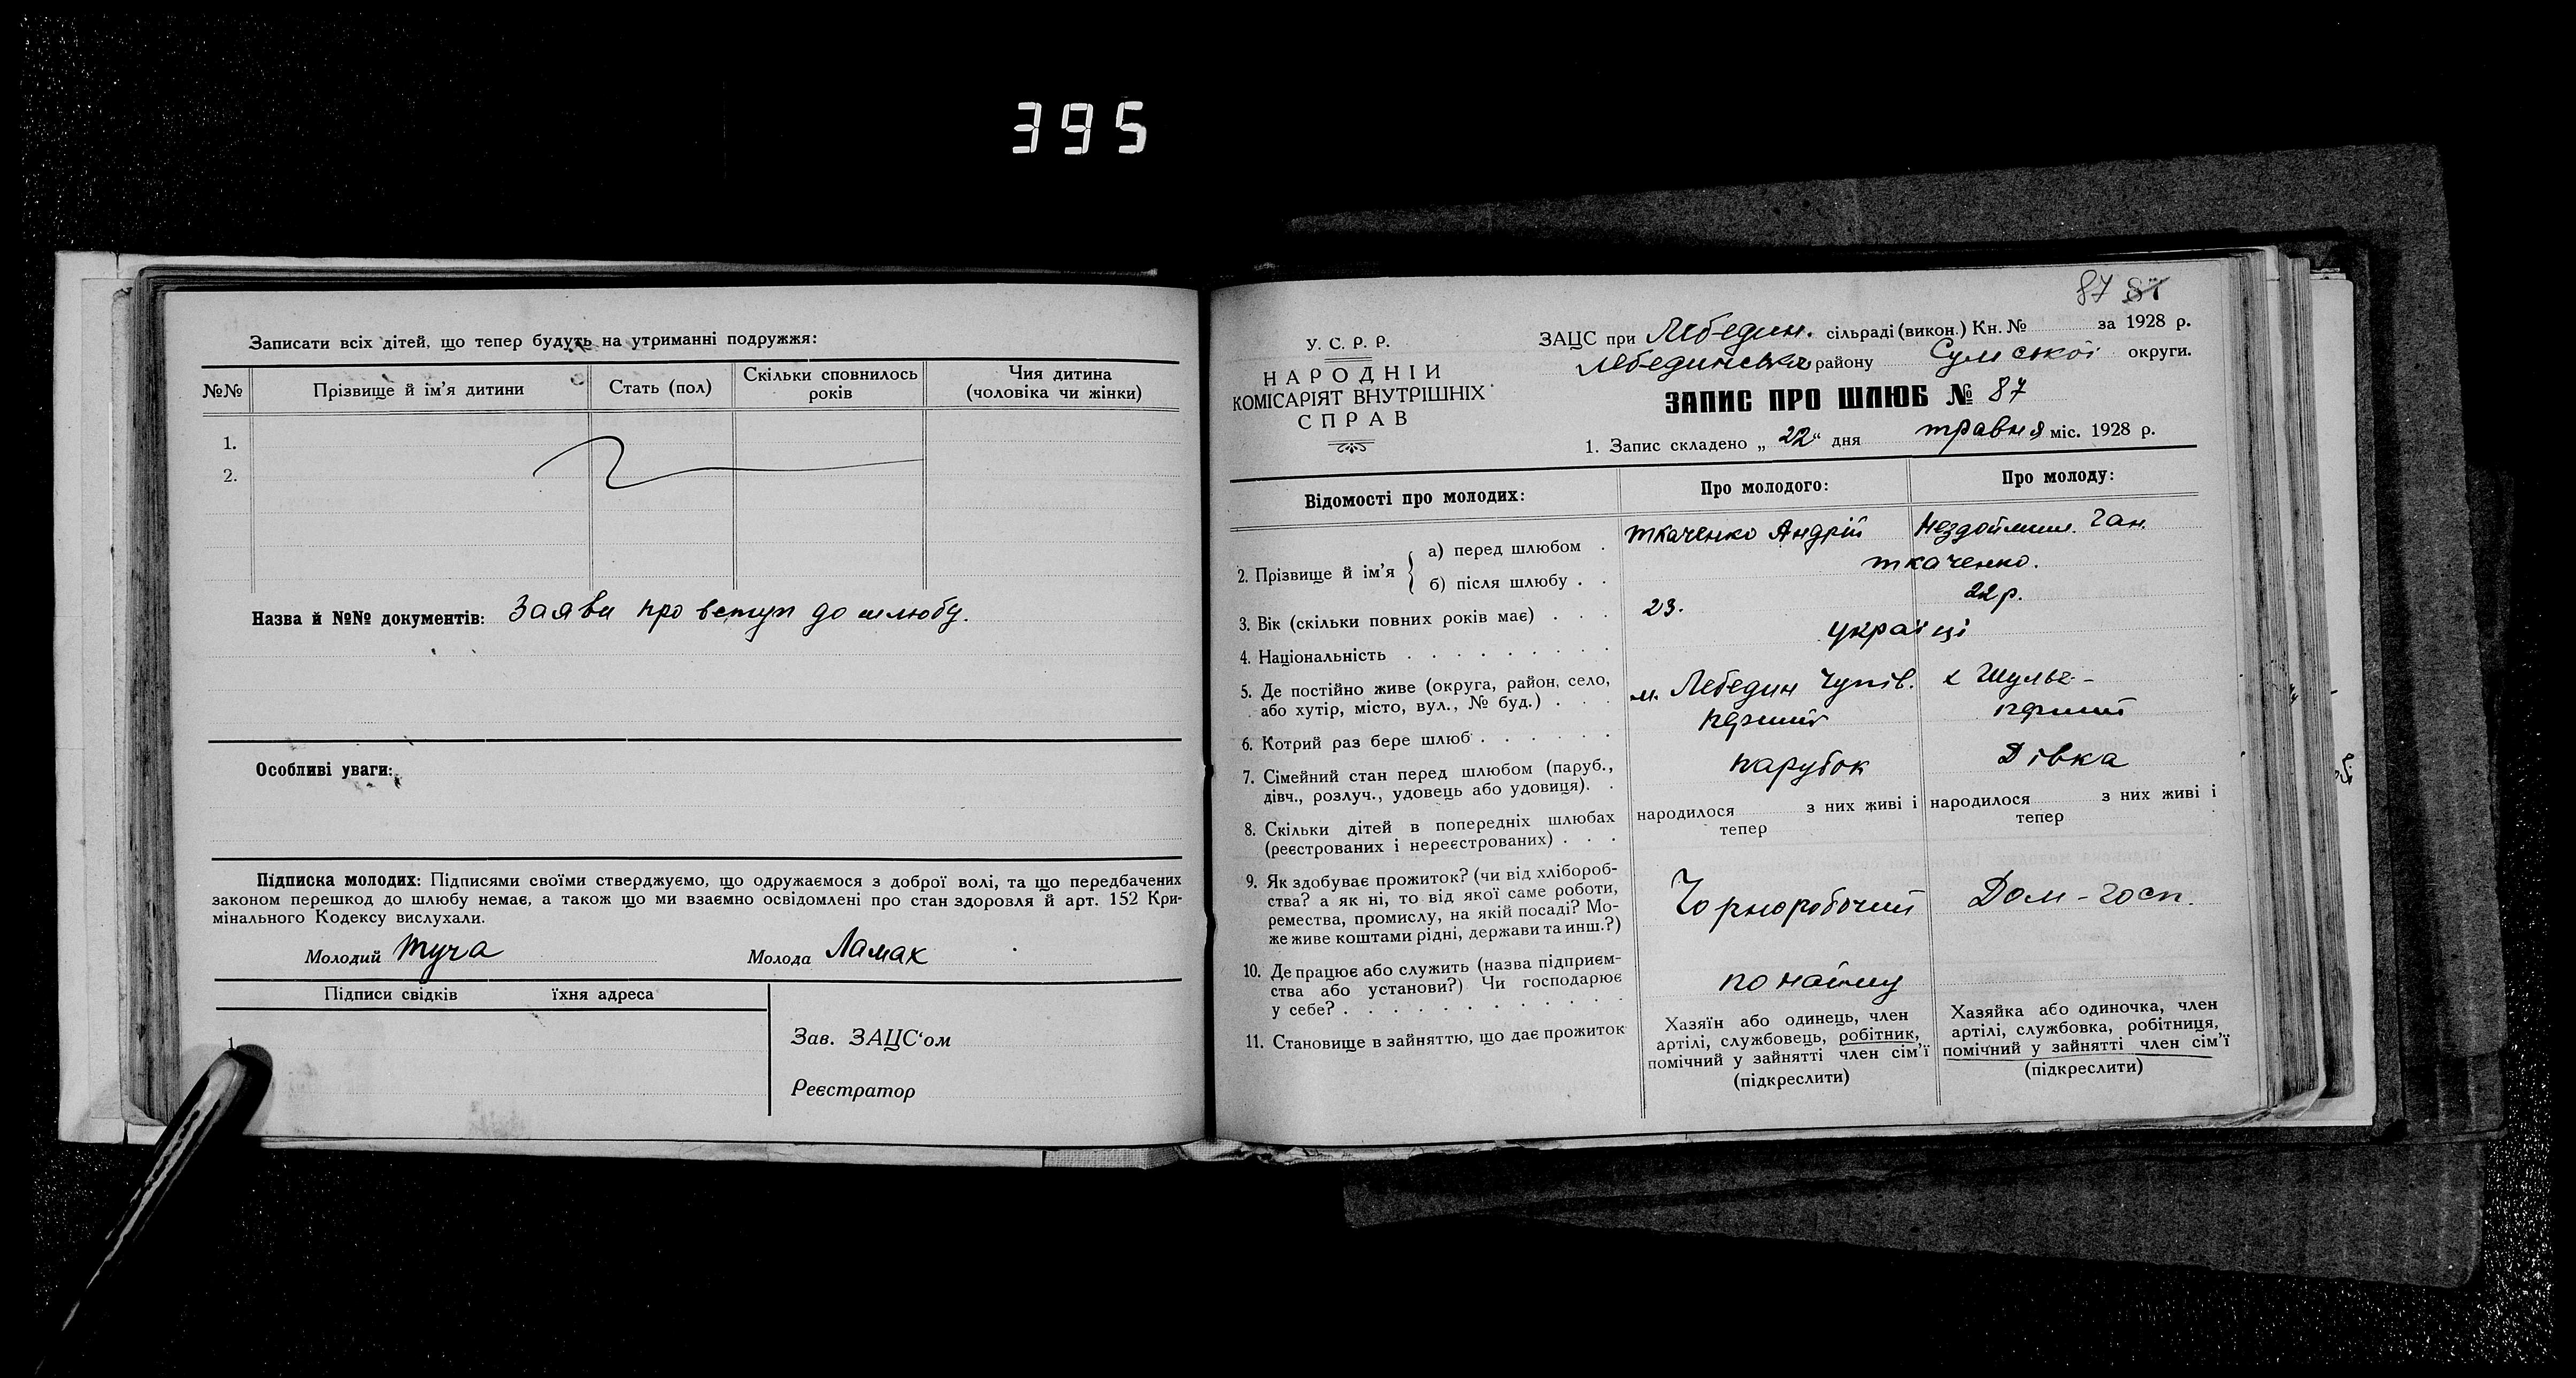 395
Записати всіх дітей, що тепер будуть на утриманні подружжя:
№№ Прізвище й ім'я дитини Стать (пол) Скільки сповнилось років Чия дитина (чоловіка чи жінки)
1.
2.
Назва й №№ документів: Заяви про вступ до шлюбу.
Особливі уваги:
Підписка молодих: Підписями своїми стверджуємо, що одружаємося з доброї волі, та що передбачених
законом перешкод до шлюбу немає, а також що ми взаємно освідомлені про стан здоровля й арт. 152 Кри-
мінального Кодексу вислухали.
Молодий Туча Молода Ламак
Підписи свідків їхня адреса
1
Зав. ЗАЦС'ом
Реєстратор
87 87
У. С. Р. Р.
НАРОДНІЙ
КОМІСАРІЯТ ВНУТРІШНІХ
СПРАВ
ЗАЦС при Лебедин. сільраді (викон.) Кн. № за 1928 р.
району Сумської округи.
ЗАПИС ПРО ШЛЮБ № 87
1. Запис складено „ 22 “ дня травня міс. 1928 р.
Відомості про молодих: Про молодого: Про молоду:
2. Прізвище й ім'я
а) перед шлюбом . Ткаченко Андрій Ган.
б) після шлюбу . . Ткаченко.
3. Вік (скільки повних років має) . . . 23. 22 р.
4. Національність . . . . . . . . . українці
5. Де постійно живе (округа, район, село,
або хутір, місто, вул., № буд.) . . . м. Лебедин х Шульг-
6. Котрий раз бере шлюб . . . . . . перший перший
7. Сімейний стан перед шлюбом (паруб.,
дівч., розлуч., удовець або удовиця). . парубок Дівка
8. Скільки дітей в попередніх шлюбах
(реєстрованих і нереєстрованих) . . .
народилося з них живі і
тепер
народилося з них живі і
тепер
9. Як здобуває прожиток? (чи від хлібороб-
ства? а як ні, то від якої саме роботи,
ремества, промислу, на якій посаді? Мо-
же живе коштами рідні, держави та инш.?)
Чорноробочий Дом-госп.
10. Де працює або служить (назва підприєм-
ства або установи?) Чи господарює
у себе? . . . . . . . . . . .
по найму
11. Становище в зайняттю, що дає прожиток
Хазяїн або одинець, член
артілі, службовець, робітник,
помічний у зайнятті член сім'ї
(підкреслити)
Хазяйка або одиночка, член
артілі, службовка, робітниця,
помічний у зайнятті член сім'ї
(підкреслити)